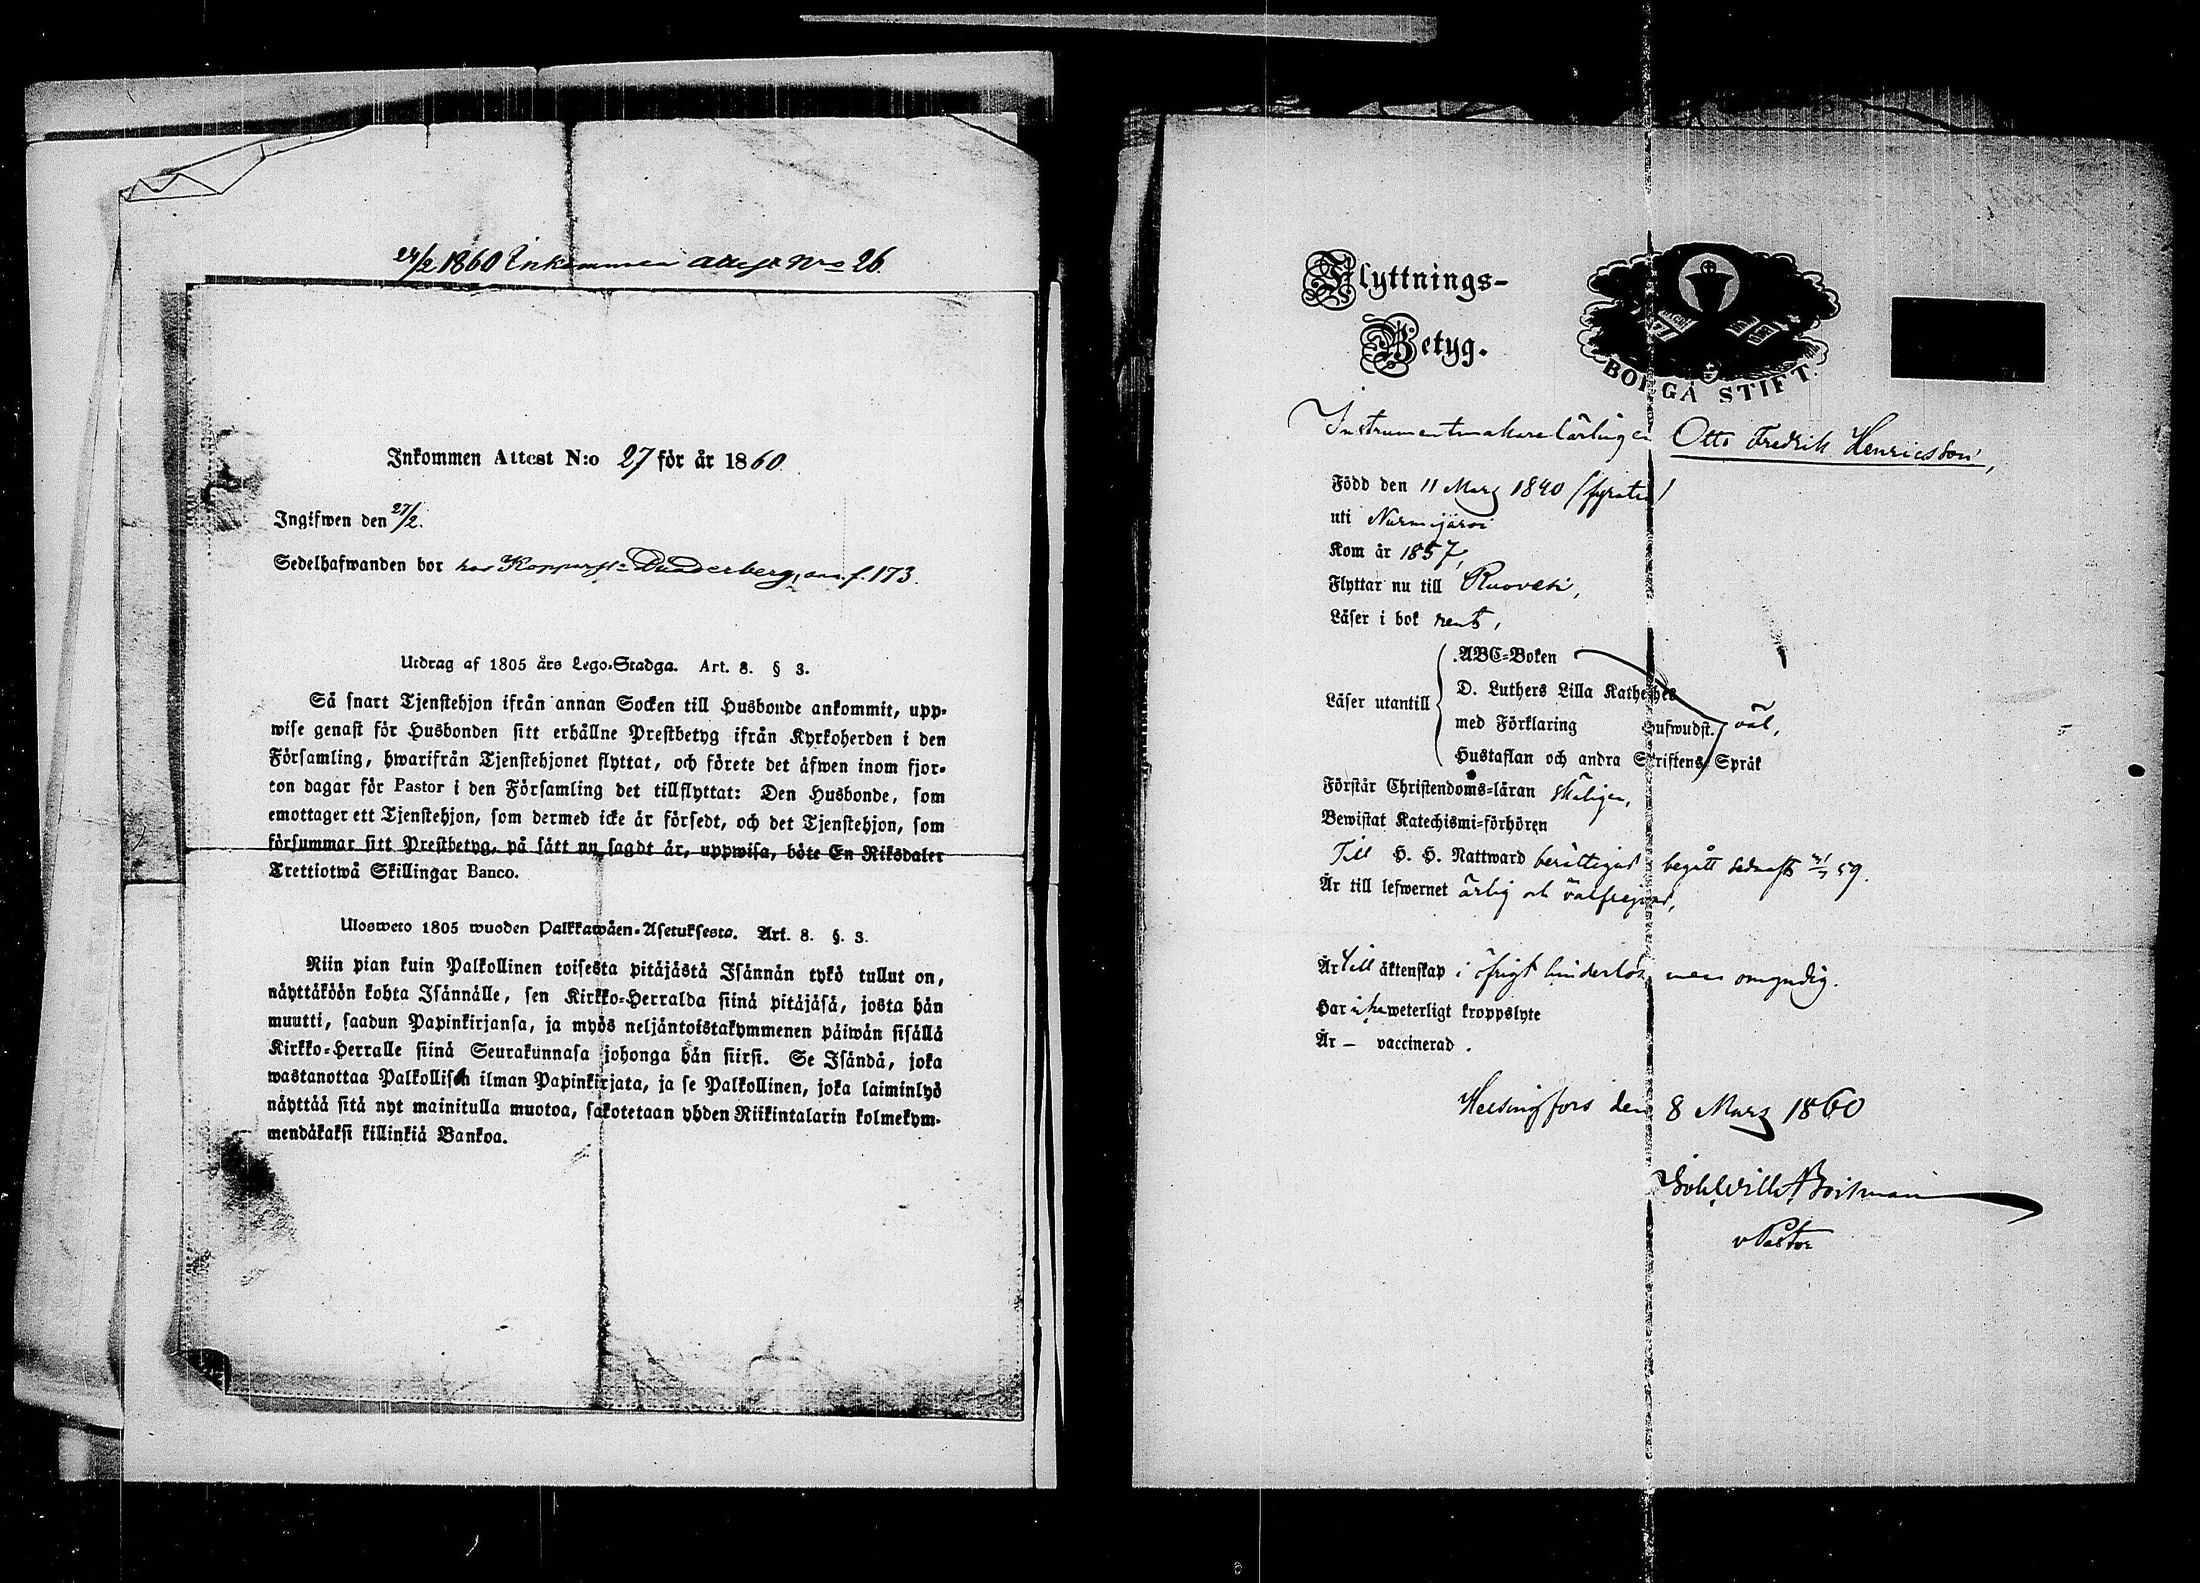 24/2 1860 Inkommen attest No 26.
Inkommen Attest N:o 27 för år 1860
Ingifwen den 27/2.
Sedelhafwanden bor hos Kopparsl: Dunderberg, ann. f. 173.
Utdrag af 1805 års Lego-Stadga. Art. 8. § 3.
Så snart Tjenstehjon ifrån annan Socken till Husbonde ankommit, upp-
wise genast för Husbonden sitt erhållne Prestbetyg ifrån Kyrkoherden i den
Församling, hwarifrån Tjenstehjonet flyttat, och förete det äfwen inom fjor-
ton dagar för Pastor i den Församling det tillflyttat: Den Husbonde, som
emottager ett Tjenstehjon, som dermed icke är försedt, och det Tjenstehjon, som
försummar sitt Prestbetyg, på sätt nu sagdt är, uppwisa, böte En Riksdaler
Trettiotwå Skillingar Banco.
Ulosweto 1805 wuoden Palkkawäen-Asetuksesta. Art. 8. §. 3.
Niin pian kuin Palkollinen toisesta pitäjästä Isännän tykö tullut on,
näyttäköön kohta Isännälle, sen Kirkko-Herralda siinä pitäjäsä, josta hän
muutti, saadun Papinkirjansa, ja myös neljäntoistakymmenen päiwän sisällä
Kirkko-Herralle siinä Seurakunnasa johonga hän siirsi. Se Isändä, joka
wastanottaa Palkollisen ilman Papinkirjata, ja se Palkollinen, joka laiminlyö
näyttää sitä nyt mainitulla muotoa, sakotetaan yhden Riikintalarin kolmekym-
mendäkaksi killinkiä Bankoa.
Flyttnings-
Betyg.
BORGÅ STIFT.
Instrumentmakarelärlingen Otto Fredrik Henricsson,
Född den 11 Mars 1840 /fyratio/
uti Nurmijärvi
Kom år 1857,
Flyttar nu till Ruovesi,
Läser i bok rent,
Läser utantill
ABC-Boken
D. Luthers Lilla Katheches
med Förklaring Hufwudst. väl,
Hustaflan och andra Skriftens Språk
Förstår Christendoms-läran skäligen,
Bewistat Katechismi-förhören
Till H. H. Nattward berättigad begått sednast 59.
Är till lefwernet ärlig och välfrejdad,
Är till äktenskap i öfrigt hinderlös men omyndig.
Har icke weterligt kroppslyte
Är – vaccinerad.
Helsingfors den 8 Mars 1860
v Pastor